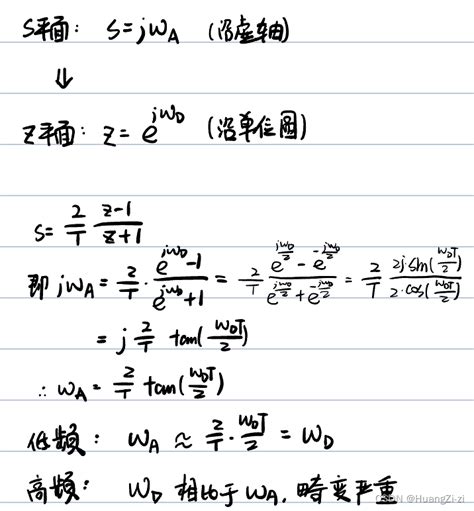 S平面: S=jω_A (沿虚轴)
⇓
Z平面: Z=e^{jω_D} (沿单位圆)
S= 2/T (z-1)/(z+1)
即 jω_A = 2/T · (e^{jω_D}-1)/(e^{jω_D}+1) = 2/T (e^{jω_D/2} - e^{-jω_D/2})/(e^{jω_D/2}+e^{-jω_D/2}) = 2/T (2j·sin(ω_DT/2))/(2·cos(ω_DT/2))
= j 2/T tan(ω_DT/2)
∴ ω_A = 2/T tan(ω_DT/2)
低频: ω_A ≈ 2/T · ω_DT/2 = ω_D
高频: ω_D 相比于 ω_A, 畸变严重
CSDN @HuangZi-zi